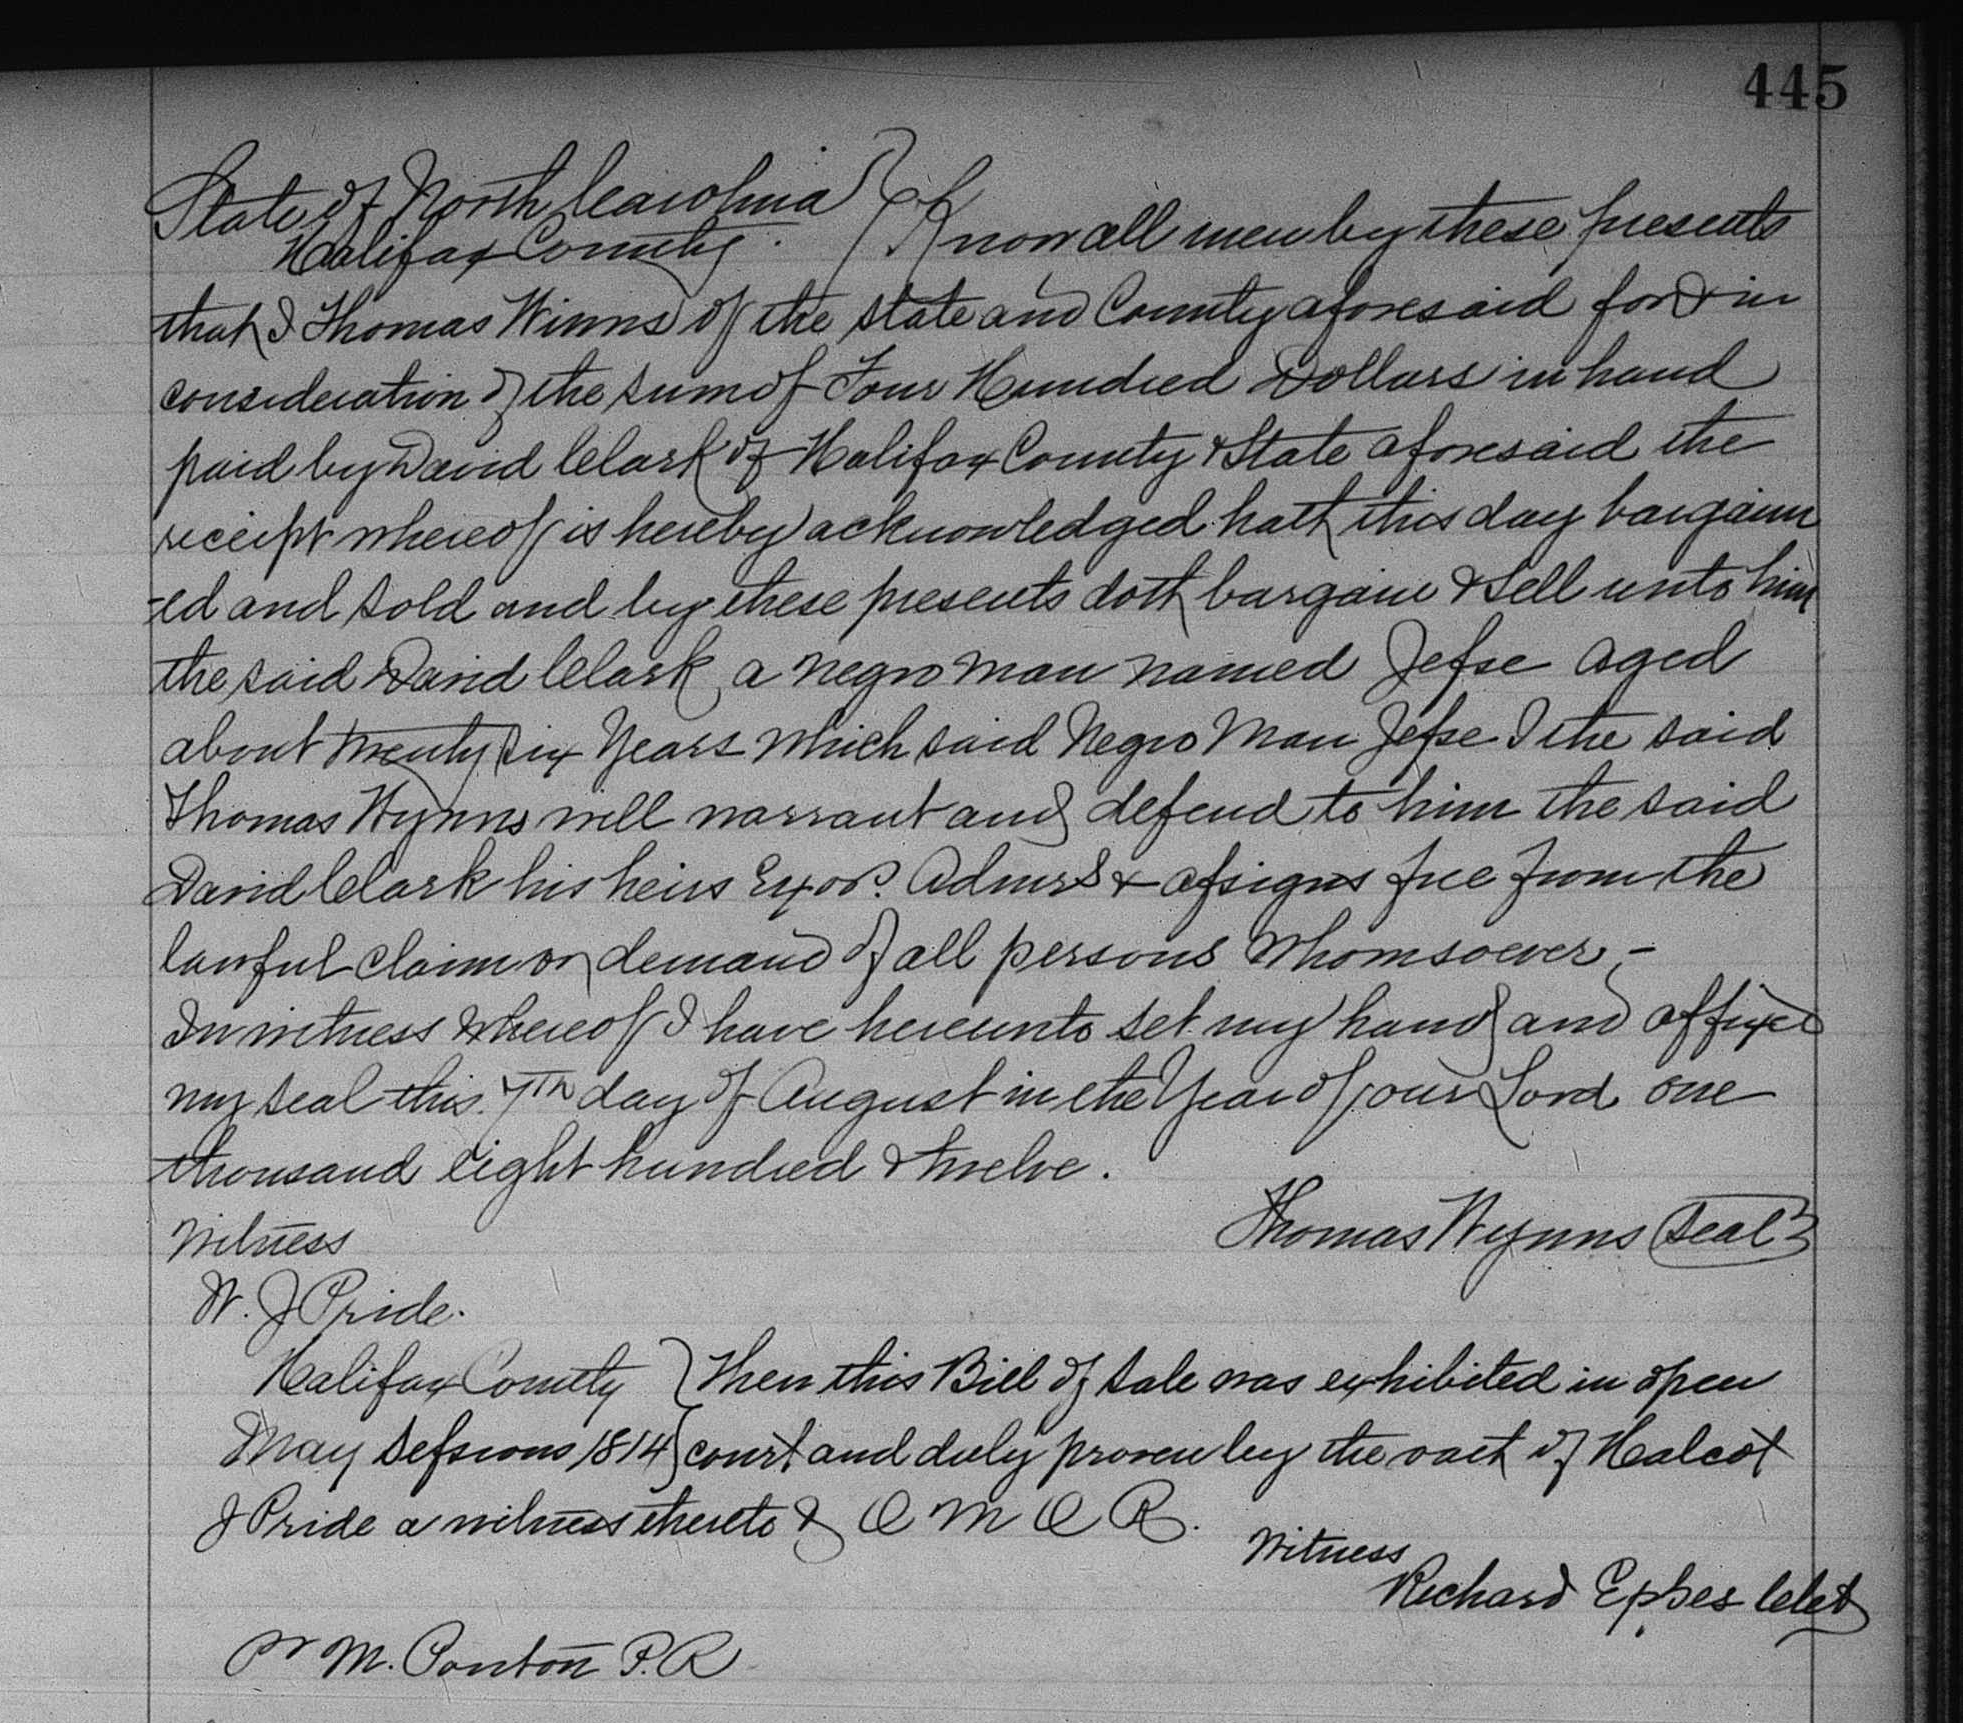 445
State of North Carolina
Halifax County. } Know all men by these presents
that I Thomas Winns of the State and County aforesaid for & in
consideration of the sum of Four Hundred Dollars in hand
paid by David Clark of Halifax County & State aforesaid the
receipt whereof is hereby acknowledged hath this day bargain
-ed and sold and by these presents doth bargain & sell unto him
the said David Clark a negro man named Jesse aged
about twenty six Years which said Negro Man Jesse I the said
Thomas Wynns will warrant and defend to him the said
David Clark his heirs Exors. Admrs & assigns free from the
lawful claim or demand of all persons Whomsoever,-
In witness whereof I have hereunto set my hand and affixed
my seal this 7th day of August in the Year of our Lord one
thousand eight hundred & twelve.
Thomas Wynns (Seal)
Witness
W. J Pride.
Halifax County } Then this Bill of Sale was exhibited in open
May Sessions 1814 } court and duly proven by the oath of Halcot
J Pride a witness thereto & O M O R.
Witness
Richard Eppes Clk
Pr M. Ponton P.R